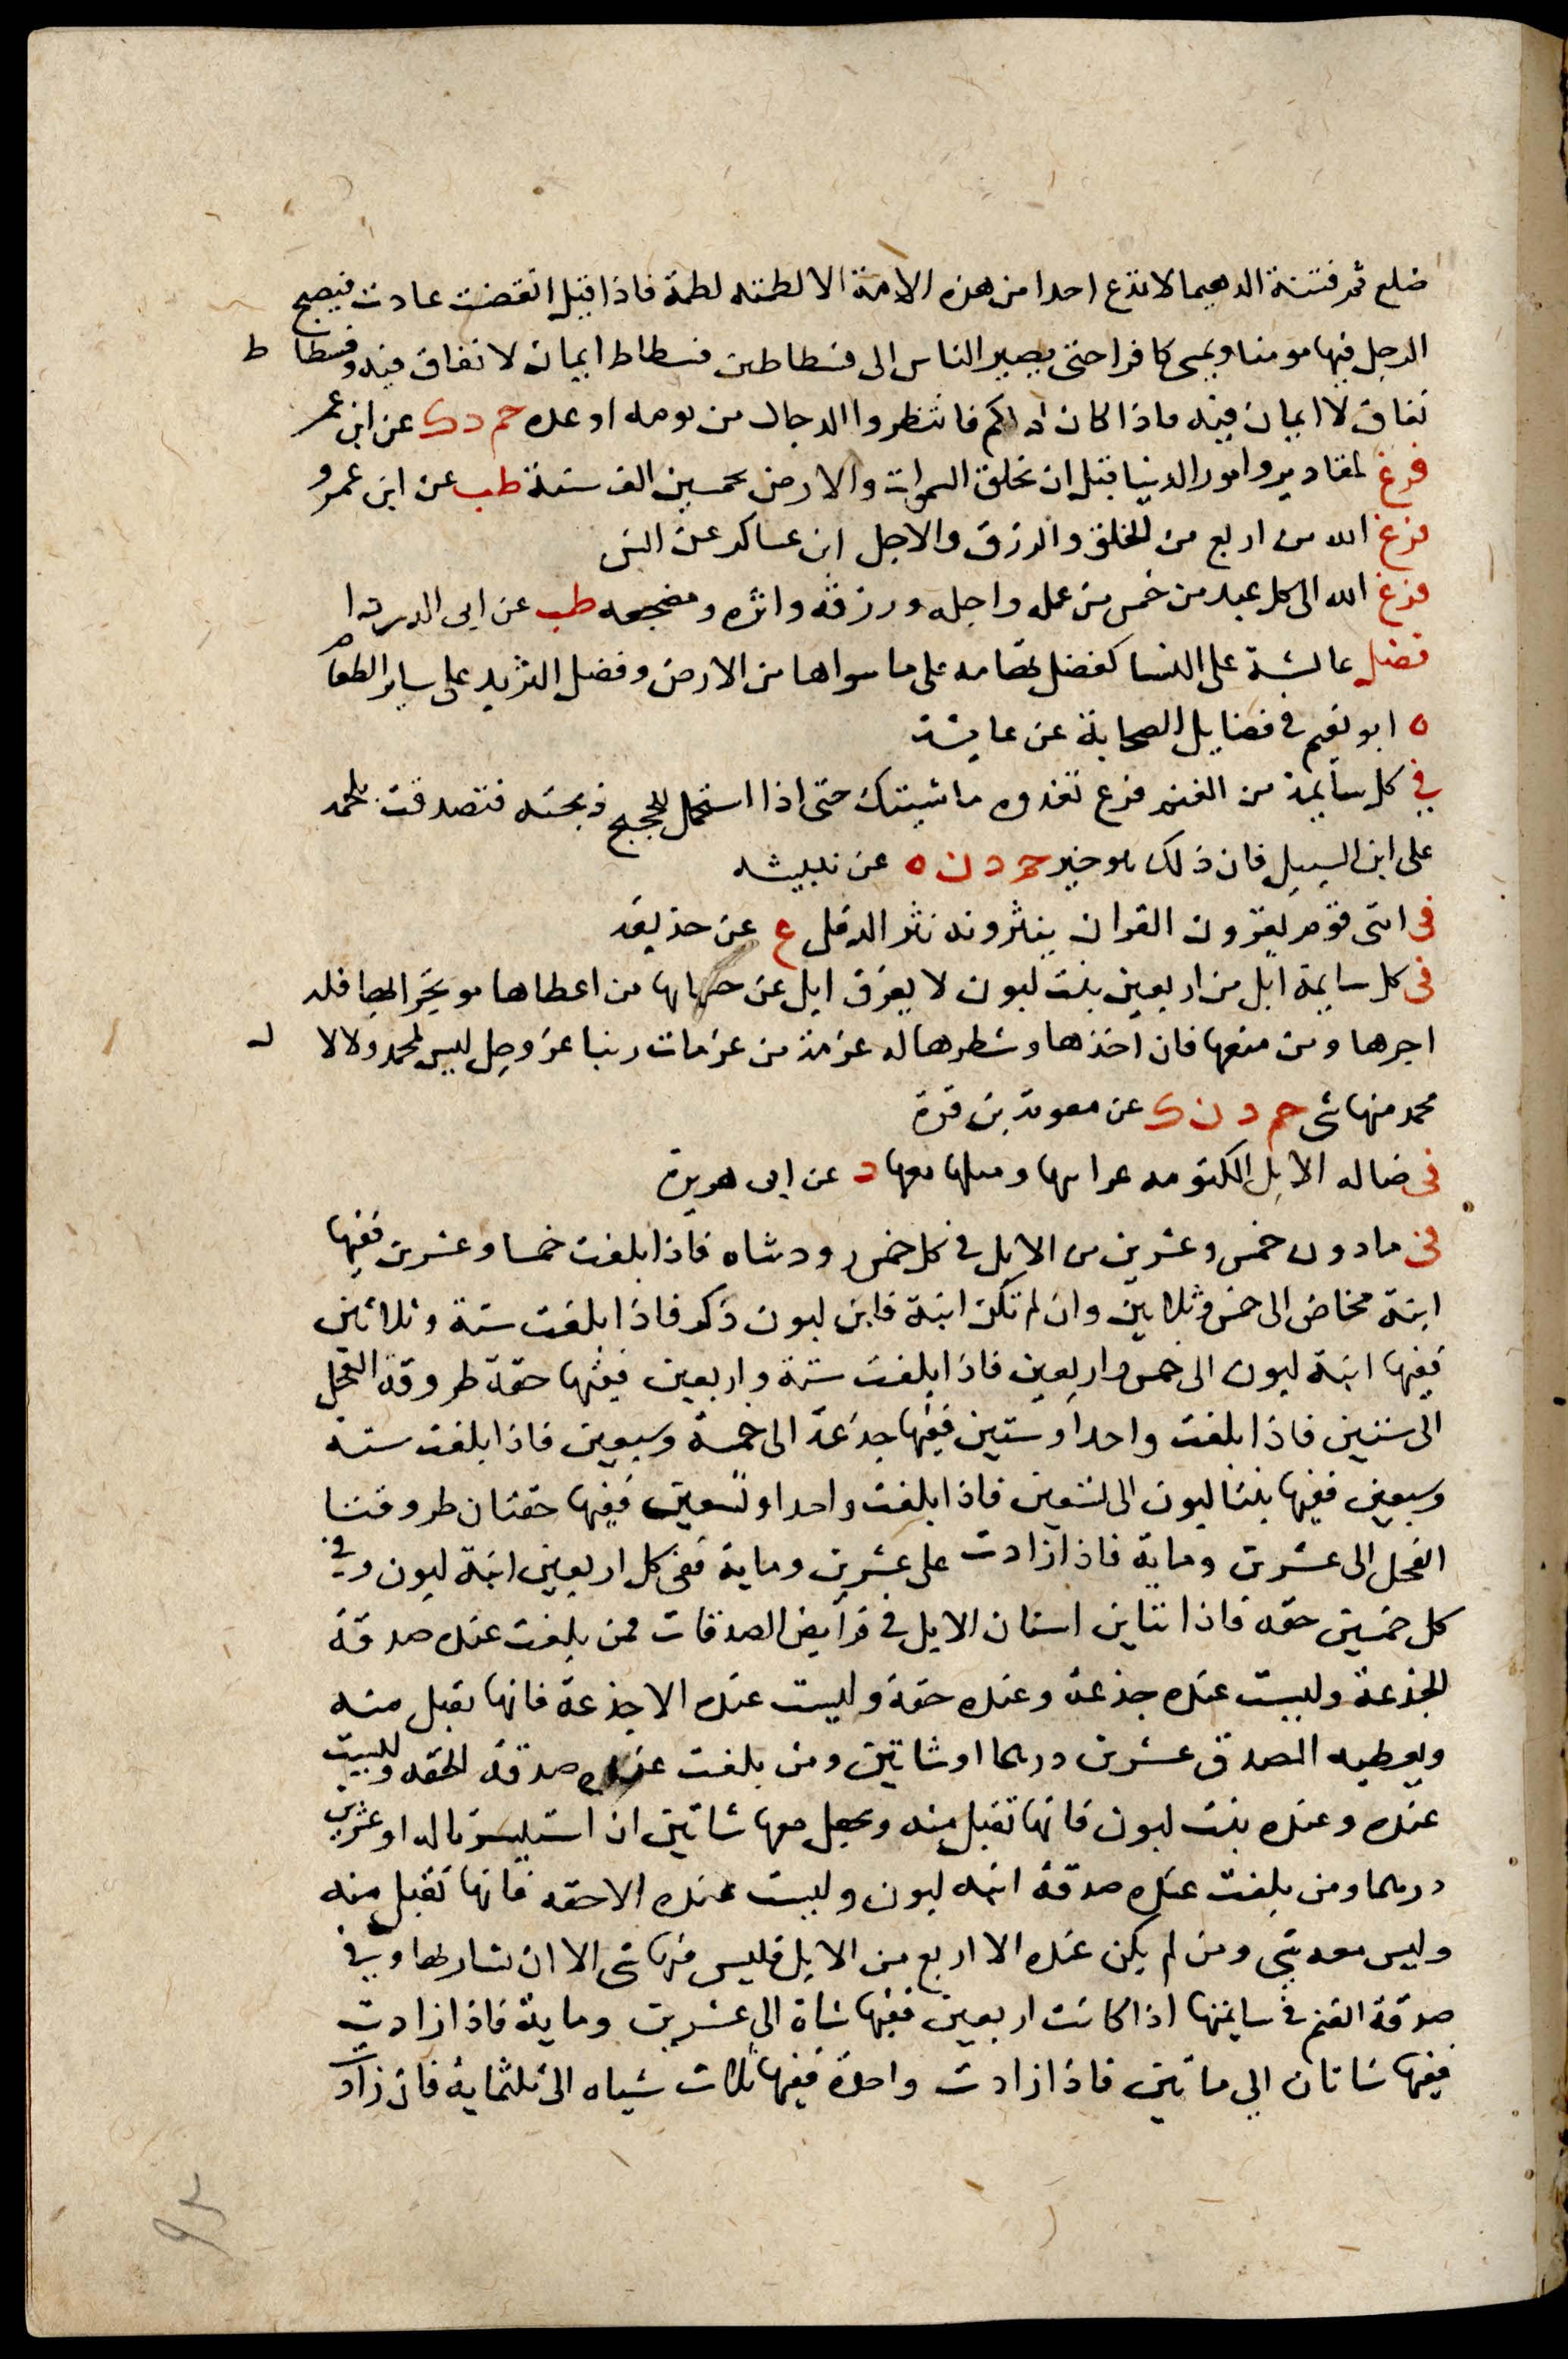 ضلع ثم فتنة الدهيما لا تدع احدا من هذه الامة الا لطمته لطمة فاذا قيل انقضت عادت فيصبح
الرجل فيها مومنا ويمسى كافرا حتى يصير الناس الى فسطاطين فسطاط ايمان لا نفاق فيه وفسطا ط
نفاق لا ايمان فيه فاذا كان ذلكم فانتظروا الدجال من يومه او غده حم د ك عن ابن عمر
فرغ لمقادير وامور الدنيا قبل ان تخلق السموات والارض بخمسين الف سنة طب عن ابن عمرو
فرغ الله من اربع من الخلق والرزق والاجل ابن عساكر عن انس
فرغ الله الى كل عبد من خمس من عمله واجله ورزقه واثره ومضجعه طب عن ابى الدردا
فضل عائشة على النسا كفضل تهامه على ما سواها من الارض وفضل الثريد على ساير الطعام
ه ابو نعيم فى فضايل الصحابة عن عايشة
في كل سايمة من الغنم فرع تغدوه ماشيتك حتى اذا استحمل للحجيج ذبحته فتصدقت بلحمه
على ابن السبيل فان ذلك هو خير حم د ن ه عن نبيشه
فى امتى قوم يقرون القران ينثرونه نثر الدقل ع عن حذيفه
فى كل سايمة ابل من اربعين بنت لبون لا يفرق ابل عن حسابها من اعطاها موتجرا بها فله
اجرها ومن منعها فان اخذها وشطر ماله عزمة من عزمات ربنا عز وجل ليس لمحمد ولا لا ل
محمد منها شى حم د ن ك عن معوية بن قرة
فى ضاله الابل المكتومه غرامتها ومثلها معها د عن ابى هريرة
فى ما دون خمس وعشرين من الابل فى كل خمس ذود شاه فاذا بلغت خمسا وعشرين ففيها
ابنة مخاض الى خمس وثلاثين وان لم تكن ابنة فابن لبون ذكر فاذا بلغت ستة وثلاثين
ففيها ابنة لبون الى خمس واربعين فاذا بلغت ستة واربعين ففيها حقة طروقة الفحل
الى ستين فاذا بلغت واحدا وستين ففيها جذعة الى خمسة وسبعين فاذا بلغت ستة
وسبعين ففيها بنتا لبون الى تسعين فاذا بلغت واحدا وتسعين ففيها حقتان طروقتا
الفحل الى عشرين وماية فاذا زادت على عشرين وماية ففى كل اربعين ابنة لبون وفى
كل خمسين حقه فاذا تباين اسنان الابل فى فرايض الصدقات فمن بلغت عنده صدقة
الجذعة وليست عنده جذعة وعنده حقة وليست عنده الا جذعة فانها تقبل منه
ويعطيه المصدق عشرين درهما او شاتين ومن بلغت عنده صدقة الحقه وليست
عنده وعنده بنت لبون فانها تقبل منه ويجعل معها شاتين ان استيسرتا له او عشرين
درهما ومن بلغت عنده صدقة ابنه لبون وليست عنده الا حقه فانها تقبل منه
وليس معه شى ومن لم يكن عنده الا اربع من الابل فليس فيها شى الا ان يشا ربها وفى
صدقة الغنم فى سايمتها اذا كانت اربعين ففيها شاة الى عشرين وماية فاذا زادت
ففيها شاتان الى ماتين فاذا زادت واحدة ففيها ثلاث شياه الى ثلثماية فان زادت
٩٢